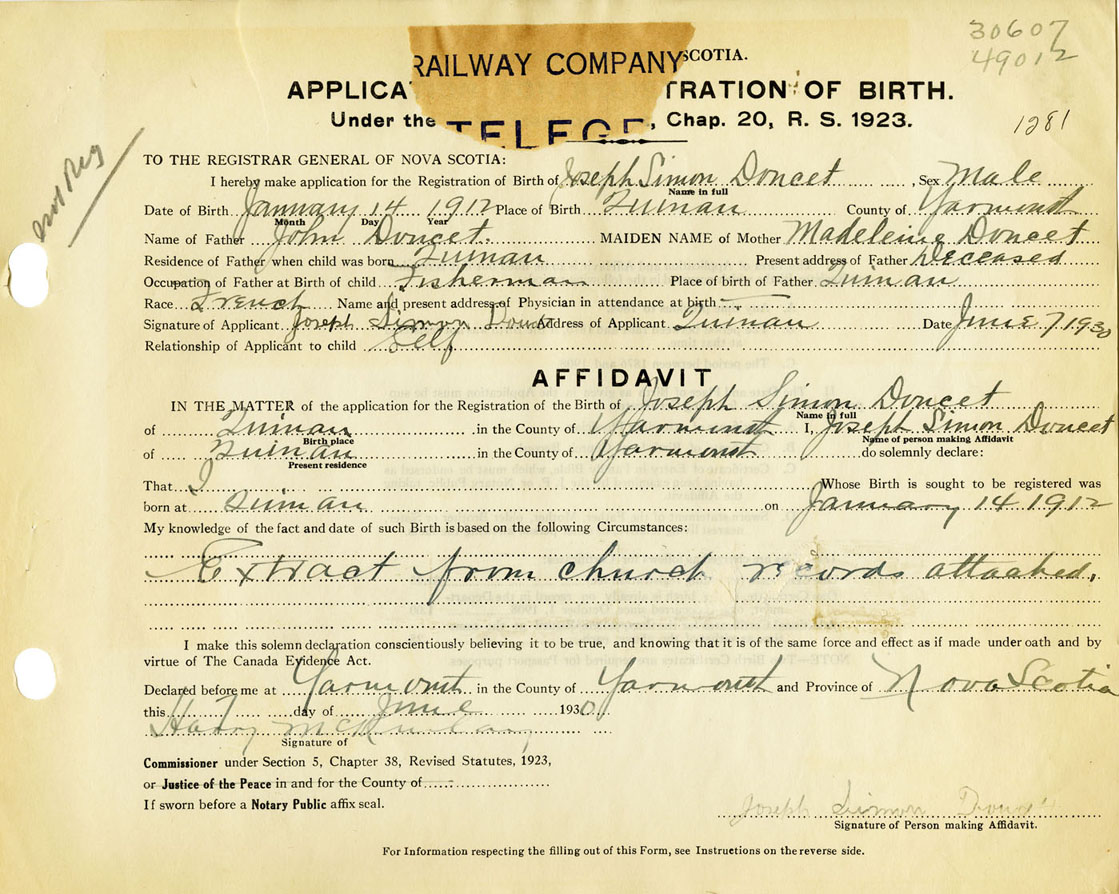 30607
49012
RAILWAY COMPANY SCOTIA.
APPLICA TRATION OF BIRTH.
Under the TELEG , Chap. 20, R. S. 1923.
1281
not Reg
TO THE REGISTRAR GENERAL OF NOVA SCOTIA:
I hereby make application for the Registration of Birth of Joseph Simon Doucet , Sex Male
Name in full
Date of Birth January 14 1912 Place of Birth Quinan County of Yarmouth
Month Day Year
Name of Father John Doucet. MAIDEN NAME of Mother Madeleine Doucet
Residence of Father when child was born Quinan Present address of Father Deceased
Occupation of Father at Birth of child Fisherman Place of birth of Father Quinan
Race French Name and present address of Physician in attendance at birth —
Signature of Applicant Joseph Simon Doucet Address of Applicant Quinan Date June 7 1930
Relationship of Applicant to child Self
AFFIDAVIT
IN THE MATTER of the application for the Registration of the Birth of Joseph Simon Doucet
Name in full
of Quinan in the County of Yarmouth I, Joseph Simon Doucet
Birth place Name of person making Affidavit
of Quinan in the County of Yarmouth do solemnly declare:
Present residence
That I Whose Birth is sought to be registered was
born at Quinan on January 14 1912
My knowledge of the fact and date of such Birth is based on the following Circumstances:
Extract from church records attached.
I make this solemn declaration conscientiously believing it to be true, and knowing that it is of the same force and effect as if made under oath and by
virtue of The Canada Evidence Act.
Declared before me at Yarmouth in the County of Yarmouth and Province of Nova Scotia
this 7 day of June 1930
Harry
Signature of
Commissioner under Section 5, Chapter 38, Revised Statutes, 1923,
or Justice of the Peace in and for the County of
If sworn before a Notary Public affix seal.
Joseph Simon Doucet
Signature of Person making Affidavit.
For Information respecting the filling out of this Form, see Instructions on the reverse side.